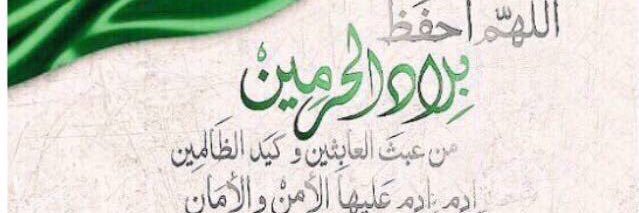 اللهم احفظ
بلاد الحرمين
من عبث العابثين وكيد الظالمين
وأدم عليها الأمن والأمان